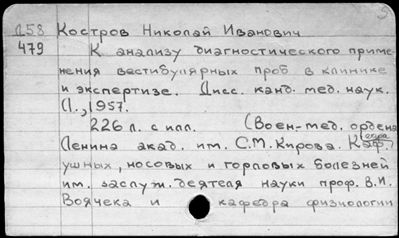 Д58 Костров Николай Иванович
479 К анализу диагностического приме-
нения вестибулярных проб в клинике
и экспертизе. Дисс. канд. мед. наук.
Л., 1957.
226 л. с илл. (Воен-мед. ордена
Ленина акад. им. С.М. Кирова. Кафедра
ушных, носовых и горловых болезней
им. заслуж. деятеля науки проф. В.И.
Воячека и кафедра физиологии